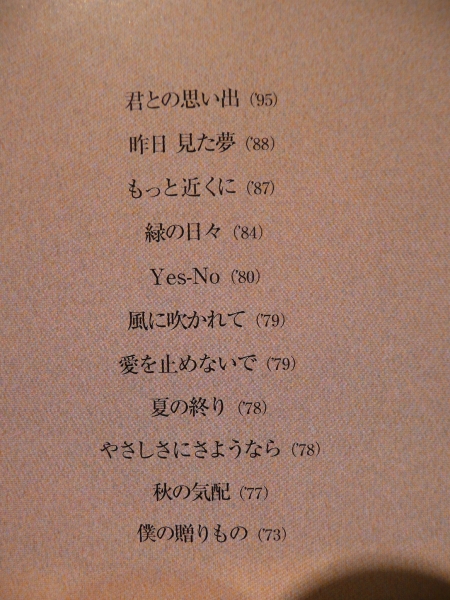 君との思い出 ('95)
昨日 見た夢 ('88)
もっと近くに ('87)
緑の日々 ('84)
Yes-No ('80)
風に吹かれて ('79)
愛を止めないで ('79)
夏の終り ('78)
やさしさにさようなら ('78)
秋の気配 ('77)
僕の贈りもの ('73)